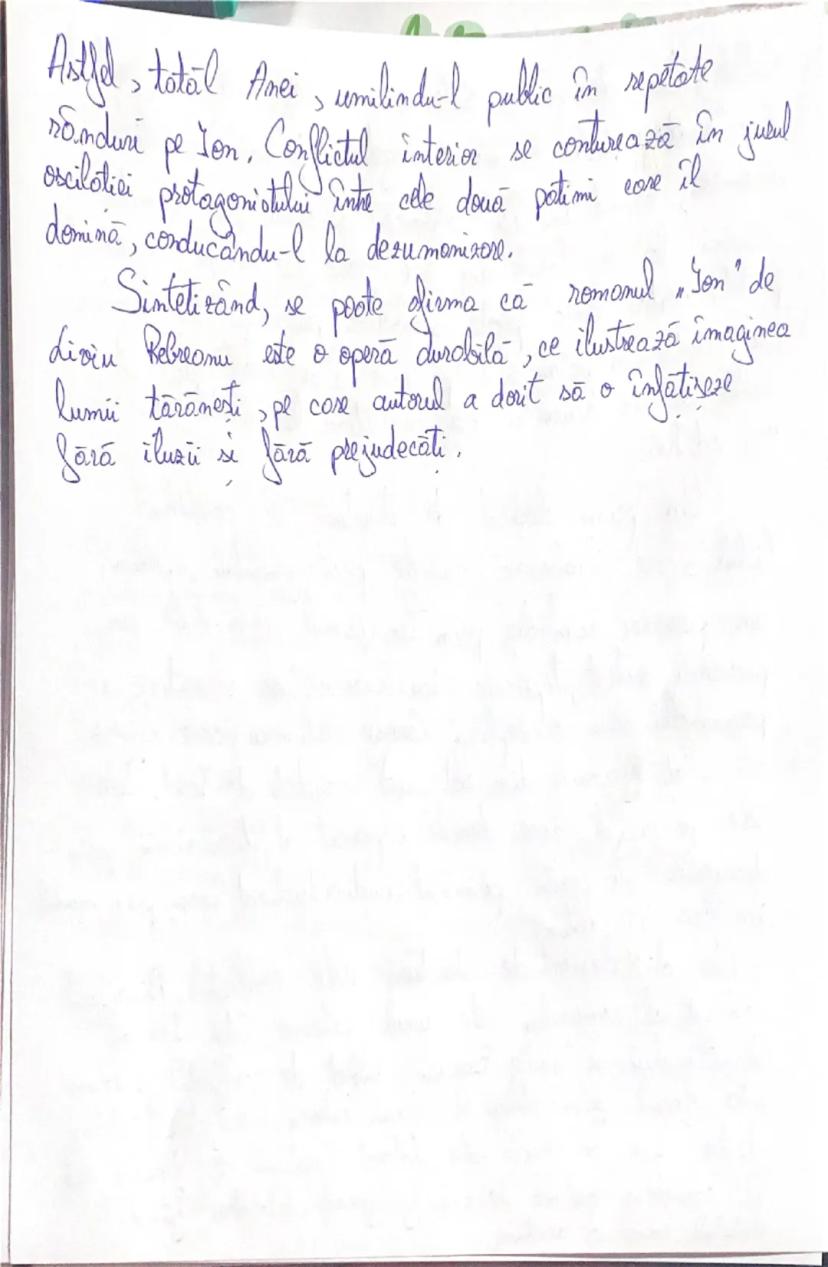 Astfel, tatăl Anei, umilindu-l public în repetate
rânduri pe Ion. Conflictul interior se conturează în jurul
oscilației protagonistului între cele două patimi care îl
domină, conducându-l la dezumanizare.
Sintetizând, se poate afirma că romanul „Ion" de
Liviu Rebreanu este o operă durabilă, ce ilustrează imaginea
lumii țărănești, pe care autorul a dorit să o înfățișeze
fără iluzii și fără prejudecăți.